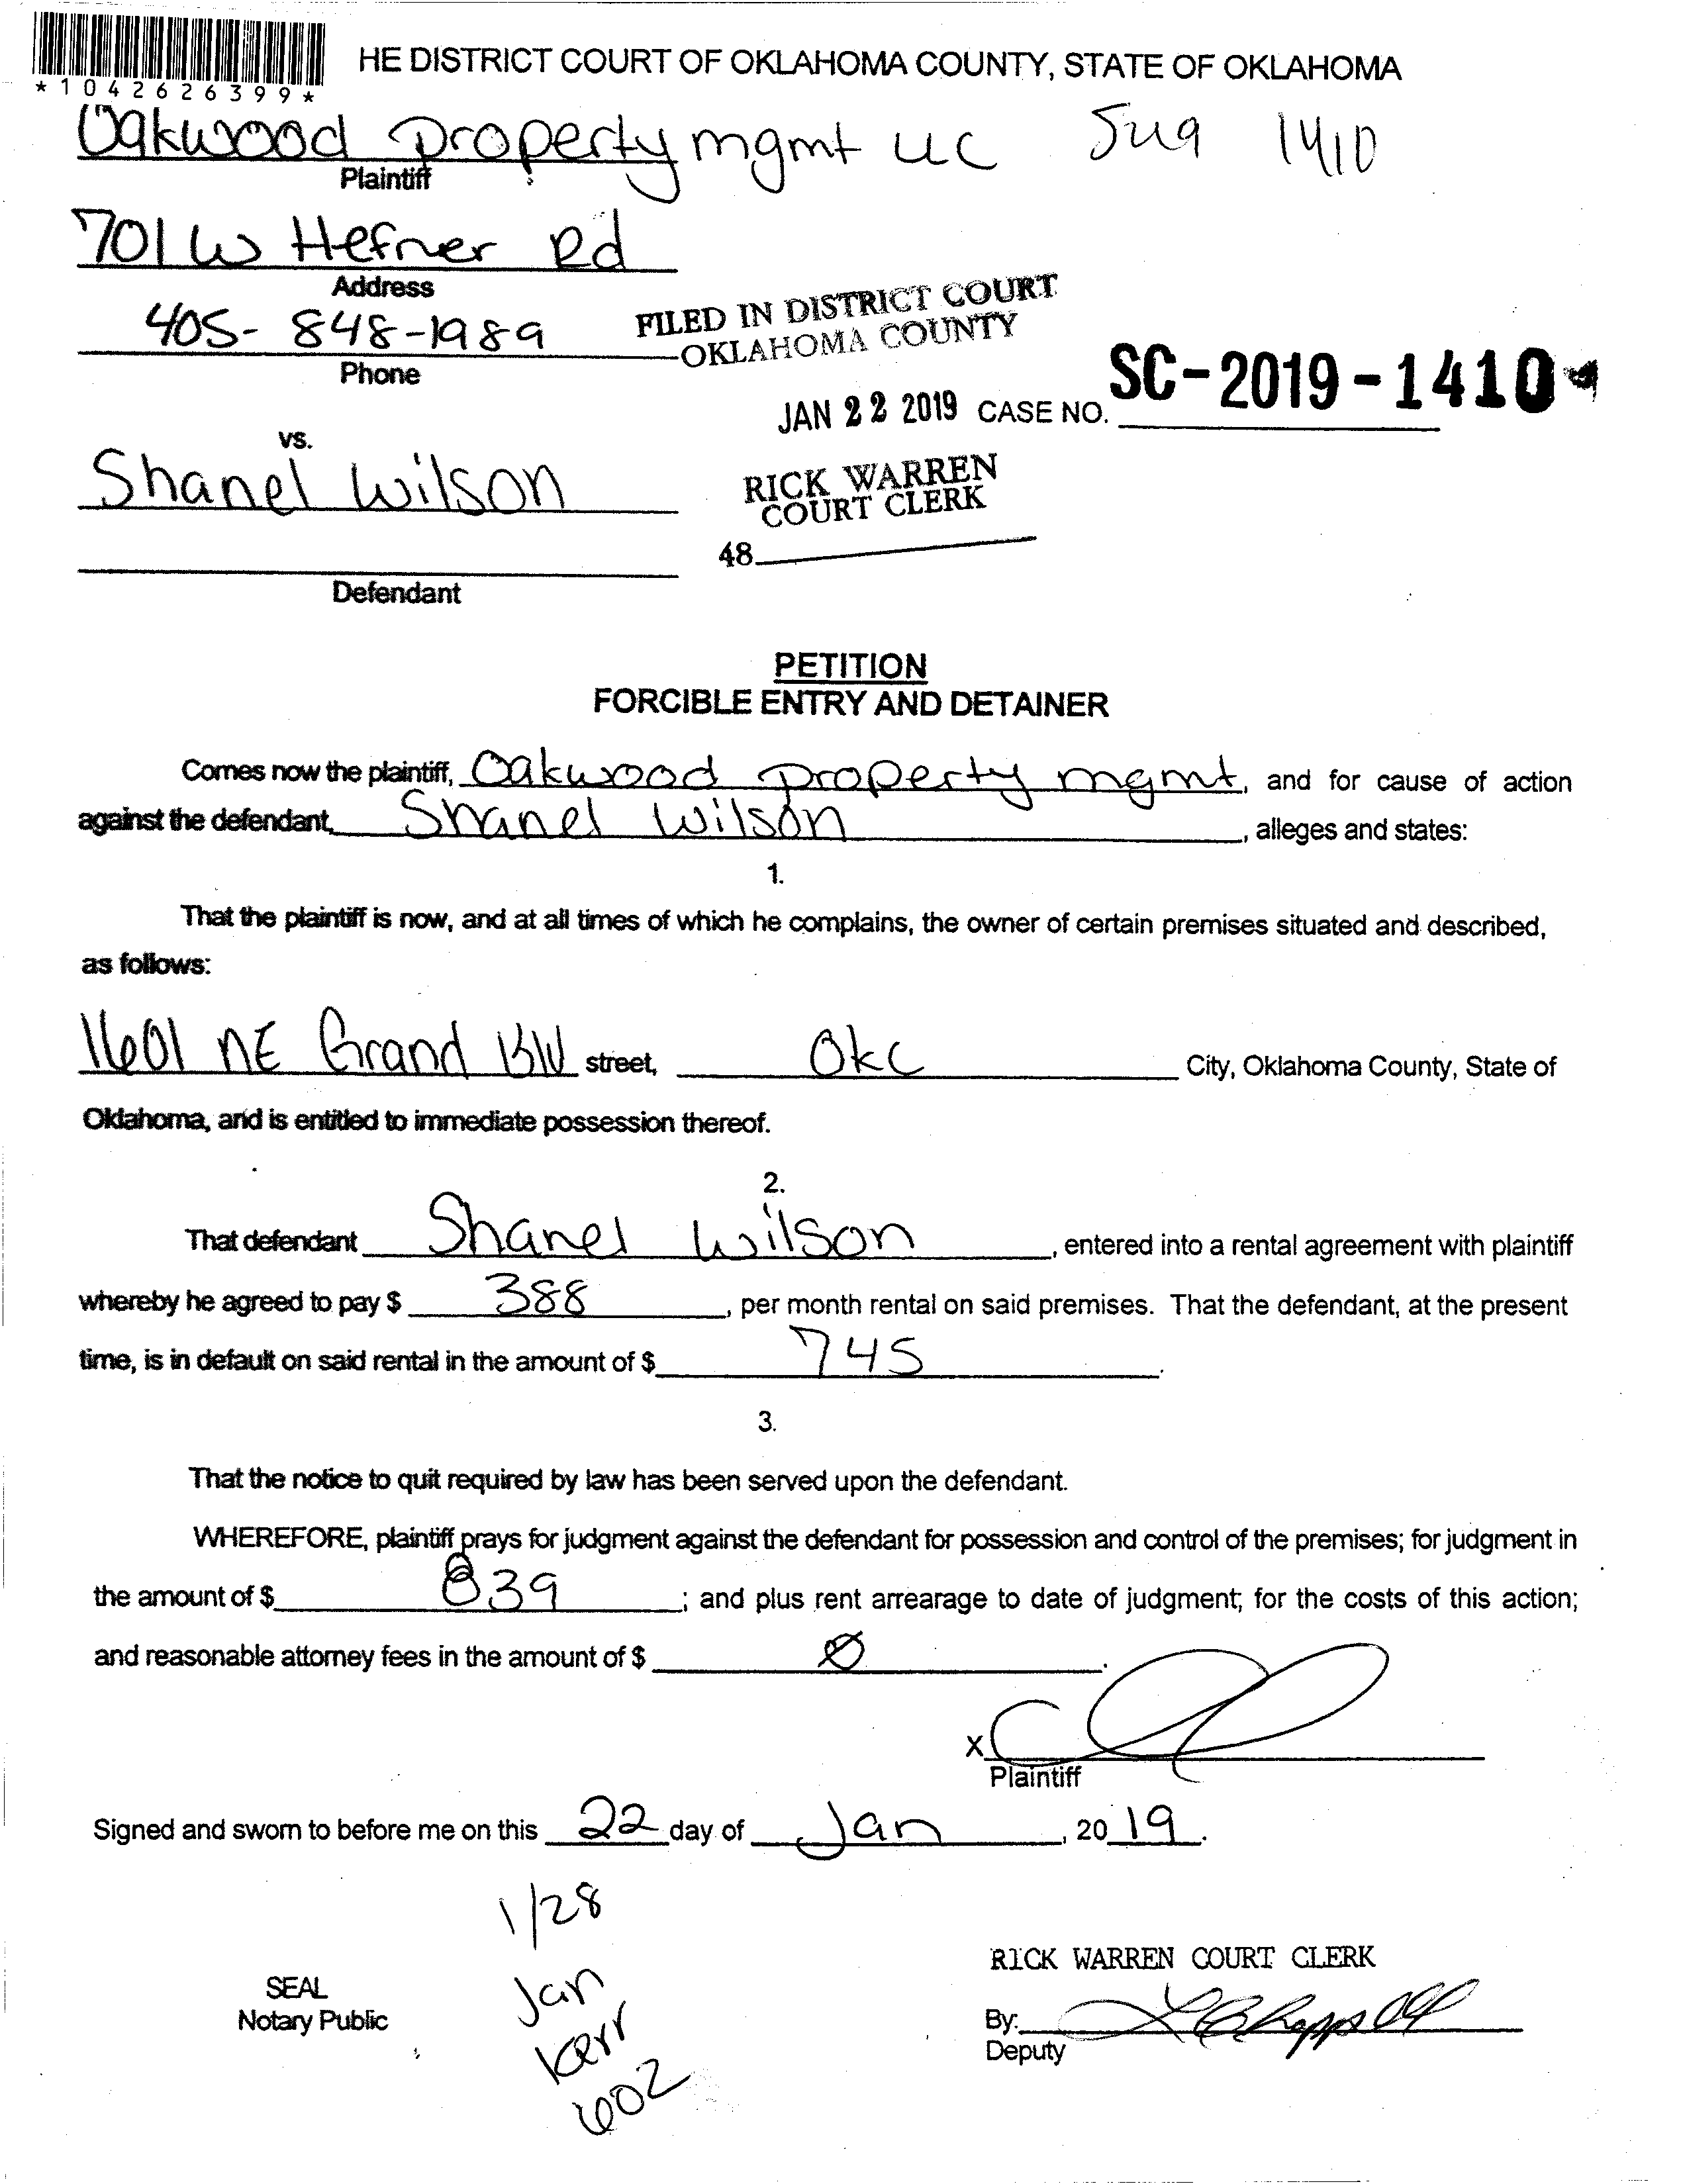 HE DISTRICT COURT OF OKLAHOMA COUNTY, STATE OF OKLAHOMA
*1042626399*
Oakwood property mgmt LLC 1410
Plaintiff
701 W Hefner Rd
Address
405-848-1989
Phone
FILED IN DISTRICT COURT
OKLAHOMA COUNTY
JAN 22 2019 CASE NO. SC-2019-1410
vs.
Shanel Wilson
RICK WARREN
COURT CLERK
48
Defendant
PETITION
FORCIBLE ENTRY AND DETAINER
Comes now the plaintiff, Oakwood property mgmt, and for cause of action
against the defendant, Shanel Wilson, alleges and states:
1.
That the plaintiff is now, and at all times of which he complains, the owner of certain premises situated and described,
as follows:
1601 NE Grand Blvd street, OKC City, Oklahoma County, State of
Oklahoma, and is entitled to immediate possession thereof.
2.
That defendant Shanel Wilson, entered into a rental agreement with plaintiff
whereby he agreed to pay $ 388, per month rental on said premises. That the defendant, at the present
time, is in default on said rental in the amount of $ 745.
3.
That the notice to quit required by law has been served upon the defendant.
WHEREFORE, plaintiff prays for judgment against the defendant for possession and control of the premises; for judgment in
the amount of $ 839; and plus rent arrearage to date of judgment; for the costs of this action;
and reasonable attorney fees in the amount of $ Ø.
X
Plaintiff
Signed and sworn to before me on this 22 day of Jan, 2019.
1/28
Jan
Kerr
602
SEAL
Notary Public
RICK WARREN COURT CLERK
By:
Deputy